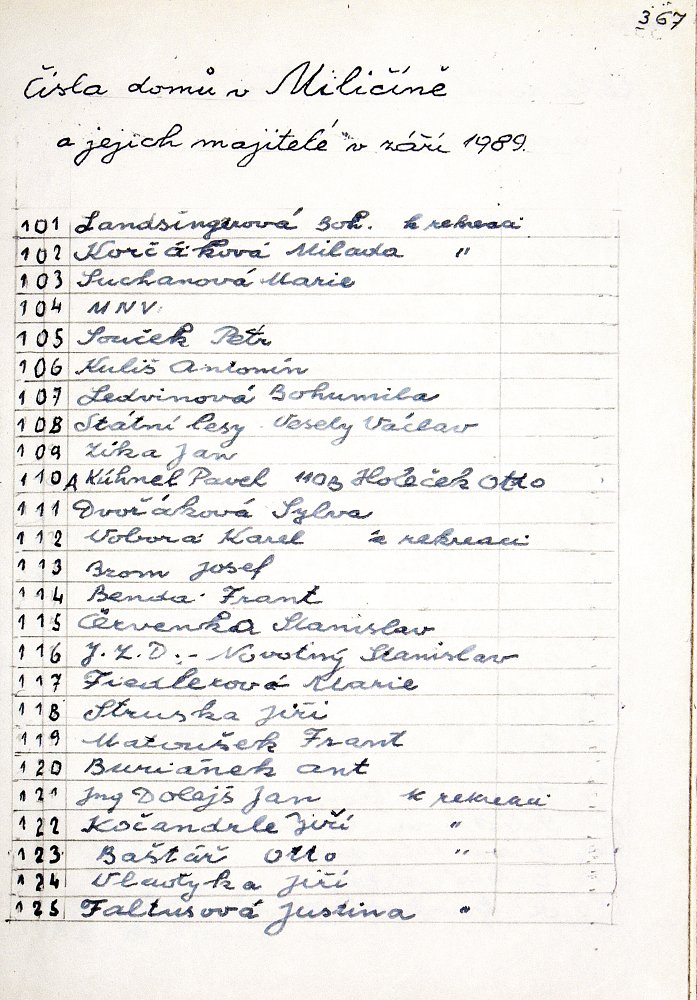 367
Čísla domů v Miličíně
a jejich majitelé v září 1989.
101 Landsingerová Boh. k rekreaci
102 Korčáková Milada "
103 Suchanová Marie
104 MNV
105 Souček Petr
106 Kuliš Antonín
107 Ledvinová Bohumila
108 Státní lesy - Vesely Václav
109 Zíka Jan
110A Kúhnel Pavel 110B Holeček Otto
111 Dvořáková Sylva
112 Vobora Karel k rekreaci
113 Brom Josef
114 Benda Frant
115 Červenka Stanislav
116 J.Z.D. - Novotný Stanislav
117 Fiedlerová Marie
118 Struska Jiří
119 Matoušek Frant
120 Buriánek Ant
121 Ing Dolejš Jan k rekreaci
122 Kočandrle Jiří "
123 Baštář Otto "
124 Vladyka Jiří
125 Faltusová Justina "